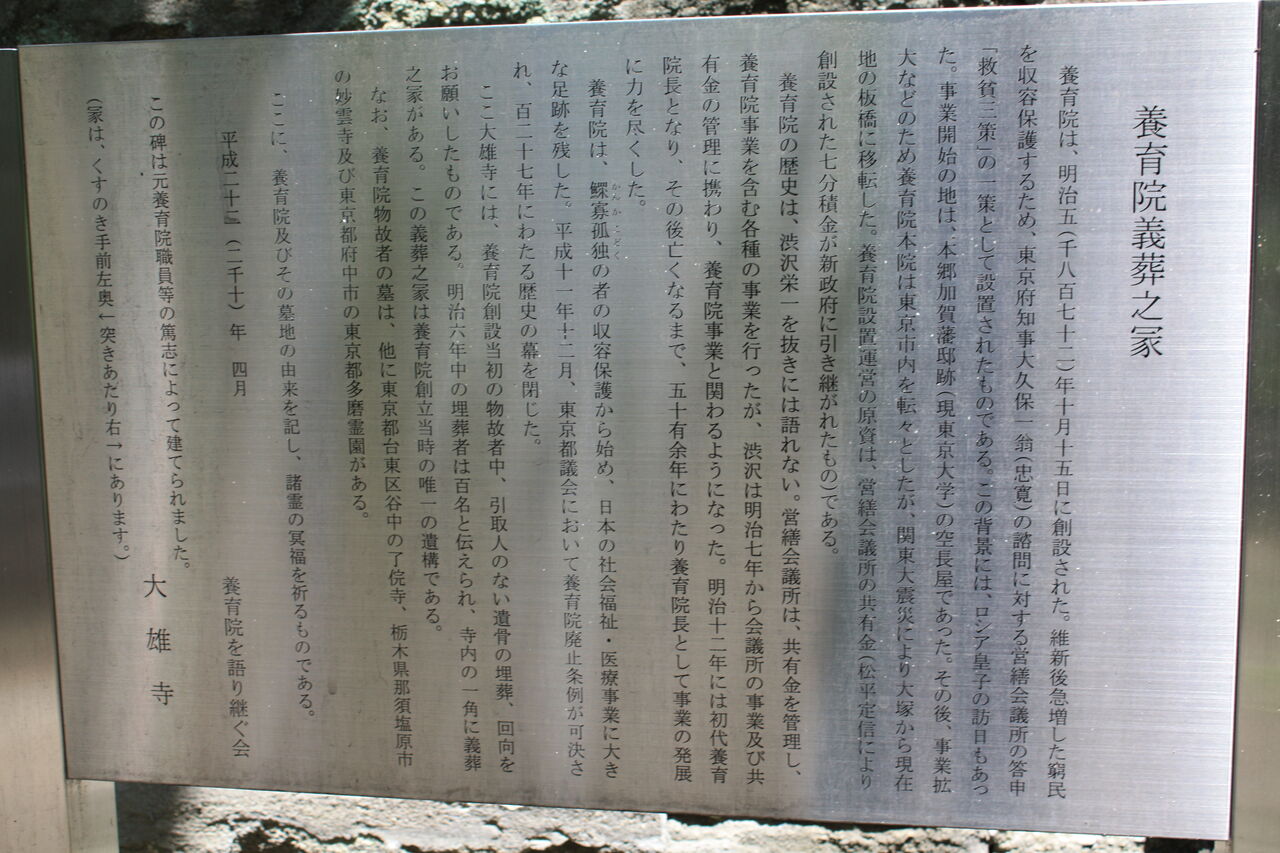 養育院義葬之冢
養育院は、明治五(千八百七十二)年十月十五日に創設された。維新後急増した窮民
を収容保護するため、東京府知事大久保一翁(忠寛)の諮問に対する営繕会議所の答申
「救貧三策」の一策として設置されたものである。この背景には、ロシア皇子の訪日もあっ
た。事業開始の地は、本郷加賀藩邸跡(現東京大学)の空長屋であった。その後、事業拡
大などのため養育院本院は東京市内を転々としたが、関東大震災により大塚から現在
地の板橋に移転した。養育院設置運営の原資は、営繕会議所の共有金(松平定信により
創設された七分積金が新政府に引き継がれたもの)である。
養育院の歴史は、渋沢栄一を抜きには語れない。営繕会議所は、共有金を管理し、
養育院事業を含む各種の事業を行ったが、渋沢は明治七年から会議所の事業及び共
有金の管理に携わり、養育院事業と関わるようになった。明治十二年には初代養育
院長となり、その後亡くなるまで、五十有余年にわたり養育院長として事業の発展
に力を尽くした。
養育院は、鰥寡孤独の者の収容保護から始め、日本の社会福祉・医療事業に大き
な足跡を残した。平成十一年十二月、東京都議会において養育院廃止条例が可決さ
れ、百二十七年にわたる歴史の幕を閉じた。
ここ大雄寺には、養育院創設当初の物故者中、引取人のない遺骨の埋葬、回向を
お願いしたものである。明治六年中の埋葬者は百名と伝えられ、寺内の一角に義葬
之冢がある。この義葬之冢は養育院創立当時の唯一の遺構である。
なお、養育院物故者の墓は、他に東京都台東区谷中の了俒寺、栃木県那須塩原市
の妙雲寺及び東京都府中市の東京都多磨霊園がある。
ここに、養育院及びその墓地の由来を記し、諸霊の冥福を祈るものである。
平成二十二(二千十)年 四月
養育院を語り継ぐ会
この碑は元養育院職員等の篤志によって建てられました。
大雄寺
(冢は、くすのき手前左奥←突きあたり右→にあります。)